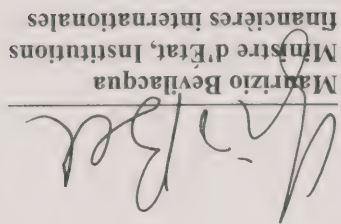 Maurizio Bevilacqua
Ministre d'État, Institutions
financières internationales